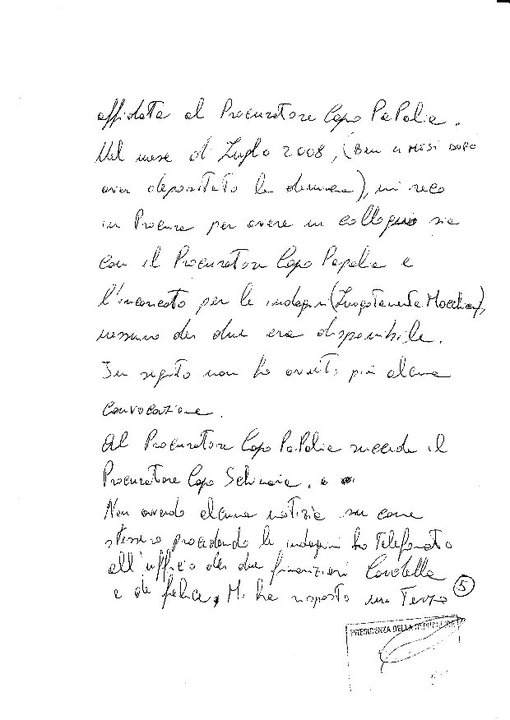 affidata al Procuratore Capo PaPalia.
Nel mese di Luglio 2008, (BEN 4 MESI DOPO
aver depositato la denuncia), mi reco
in Procura per avere un colloquio sia
con il Procuratore Capo Papalia e
l'incaricato per le indagini (Luogotenente
nessuno dei due era disponibile.
In seguito non ho avuto più alcuna
convocazione.
Al Procuratore Capo PaPalia succede il
Procuratore Capo Schinaia.
Non avendo alcuna notizia su come
stessero procedendo le indagini ho Telefonato
all'ufficio dei due finanzieri
e de felice, Mi ha risposto un Terzo
5
PRESIDENZA DELLA